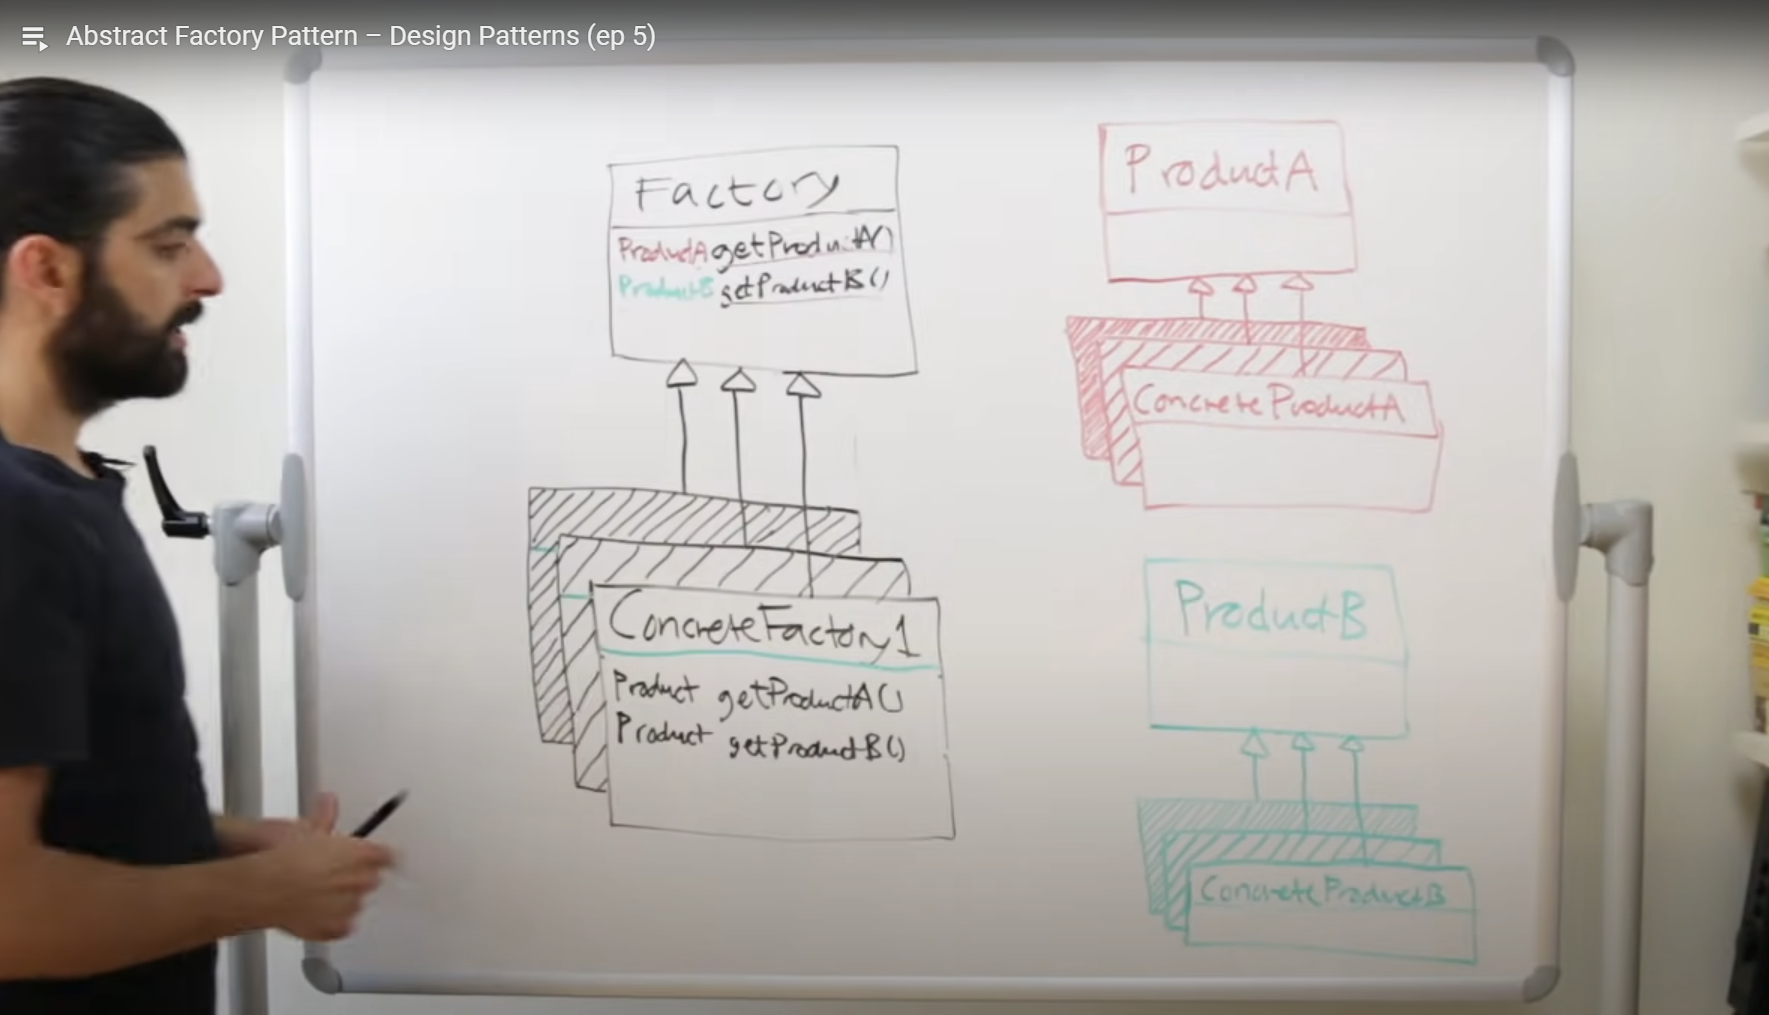 Abstract Factory Pattern – Design Patterns (ep 5)
Factory
ProductA getProductA()
ProductB getProductB()
ConcreteFactory1
Product getProductA()
Product getProductB()
ProductA
ConcreteProductA
ProductB
ConcreteProductB